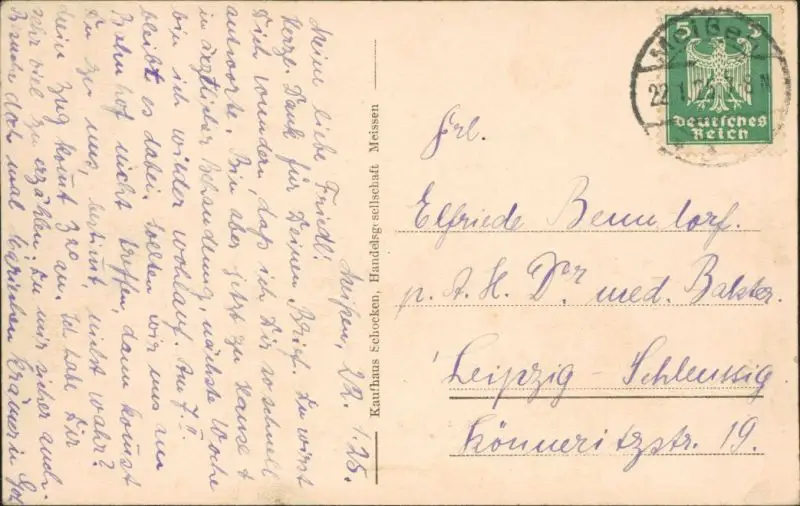 Meißen, 22.1.25.
Meine liebe Friedl!
Herzl. Dank für Deinen Brief. Du wirst
Dich wundern, daß ich Dir so schnell
antworte. Bin aber jetzt zu Hause &
in ärztlicher Behandlung, nächste Woche
bin ich wieder wohlauf. Am 7.II.
bleibt es dabei. Sollten wir uns am
Bahnhof nicht treffen, dann kommst
Du zu uns, bestimmt, nicht wahr?
Mein Zug kommt 3 an. Ich habe Dir
sehr viel zu erzählen. Du mir sicher auch.
doch mal
Kaufhaus Schocken, Handelsgesellschaft Meissen
Meißen
22.1.25. 8 N
5 5
Deutsches
Reich
Frl.
Elfriede Benndorf.
p. A. H. Dr. med. Bakter.
Leipzig-Schleussig
Könneritzstr. 19.